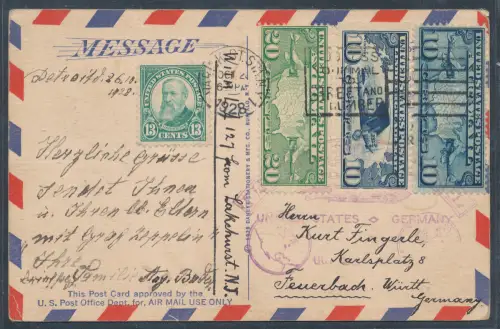 MESSAGE
Detroit d. 26.10.
1928.
Herzliche Grüsse
sendet Ihnen
u. Ihren lb. Eltern
"mit Graf Zeppelin"
Ihre
Familie
This Post Card approved by the
U. S. Post Office Dept. for, AIR MAIL USE ONLY
With L 127 from Lakehurst N.J.
UNITED STATES POSTAGE
13 CENTS 13
1928
ADDRESS
YOUR MAIL
TO
STREET AND
NUMBER
20 UNITED STATES POSTAGE 20
10 UNITED STATES POSTAGE 10
10 UNITED STATES POSTAGE 10
UNITED STATES GERMANY
Herrn
Kurt Fingerle,
Karlsplatz 8
Feuerbach. Württ
Germany